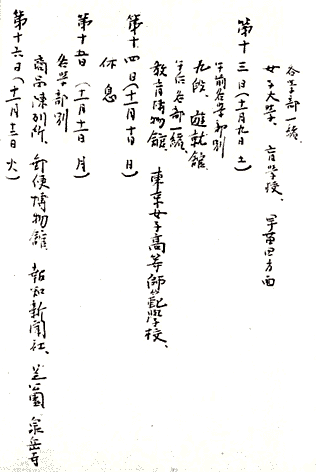 各学部一緒
女子大学、盲唖学校、早苗田方面
第十三日(十一月九日 土)
午前各学部別
九段、遊就館
午后各部一緒、
教育博物館、東京女子高等師範学校、
第十四日(十一月十日 日)
休息
第十五日(十一月十一日 月)
各学部別
商品陳列所、郵便博物館、報知新聞社、芝公園 泉岳寺
第十六日(十一月十二日 火)